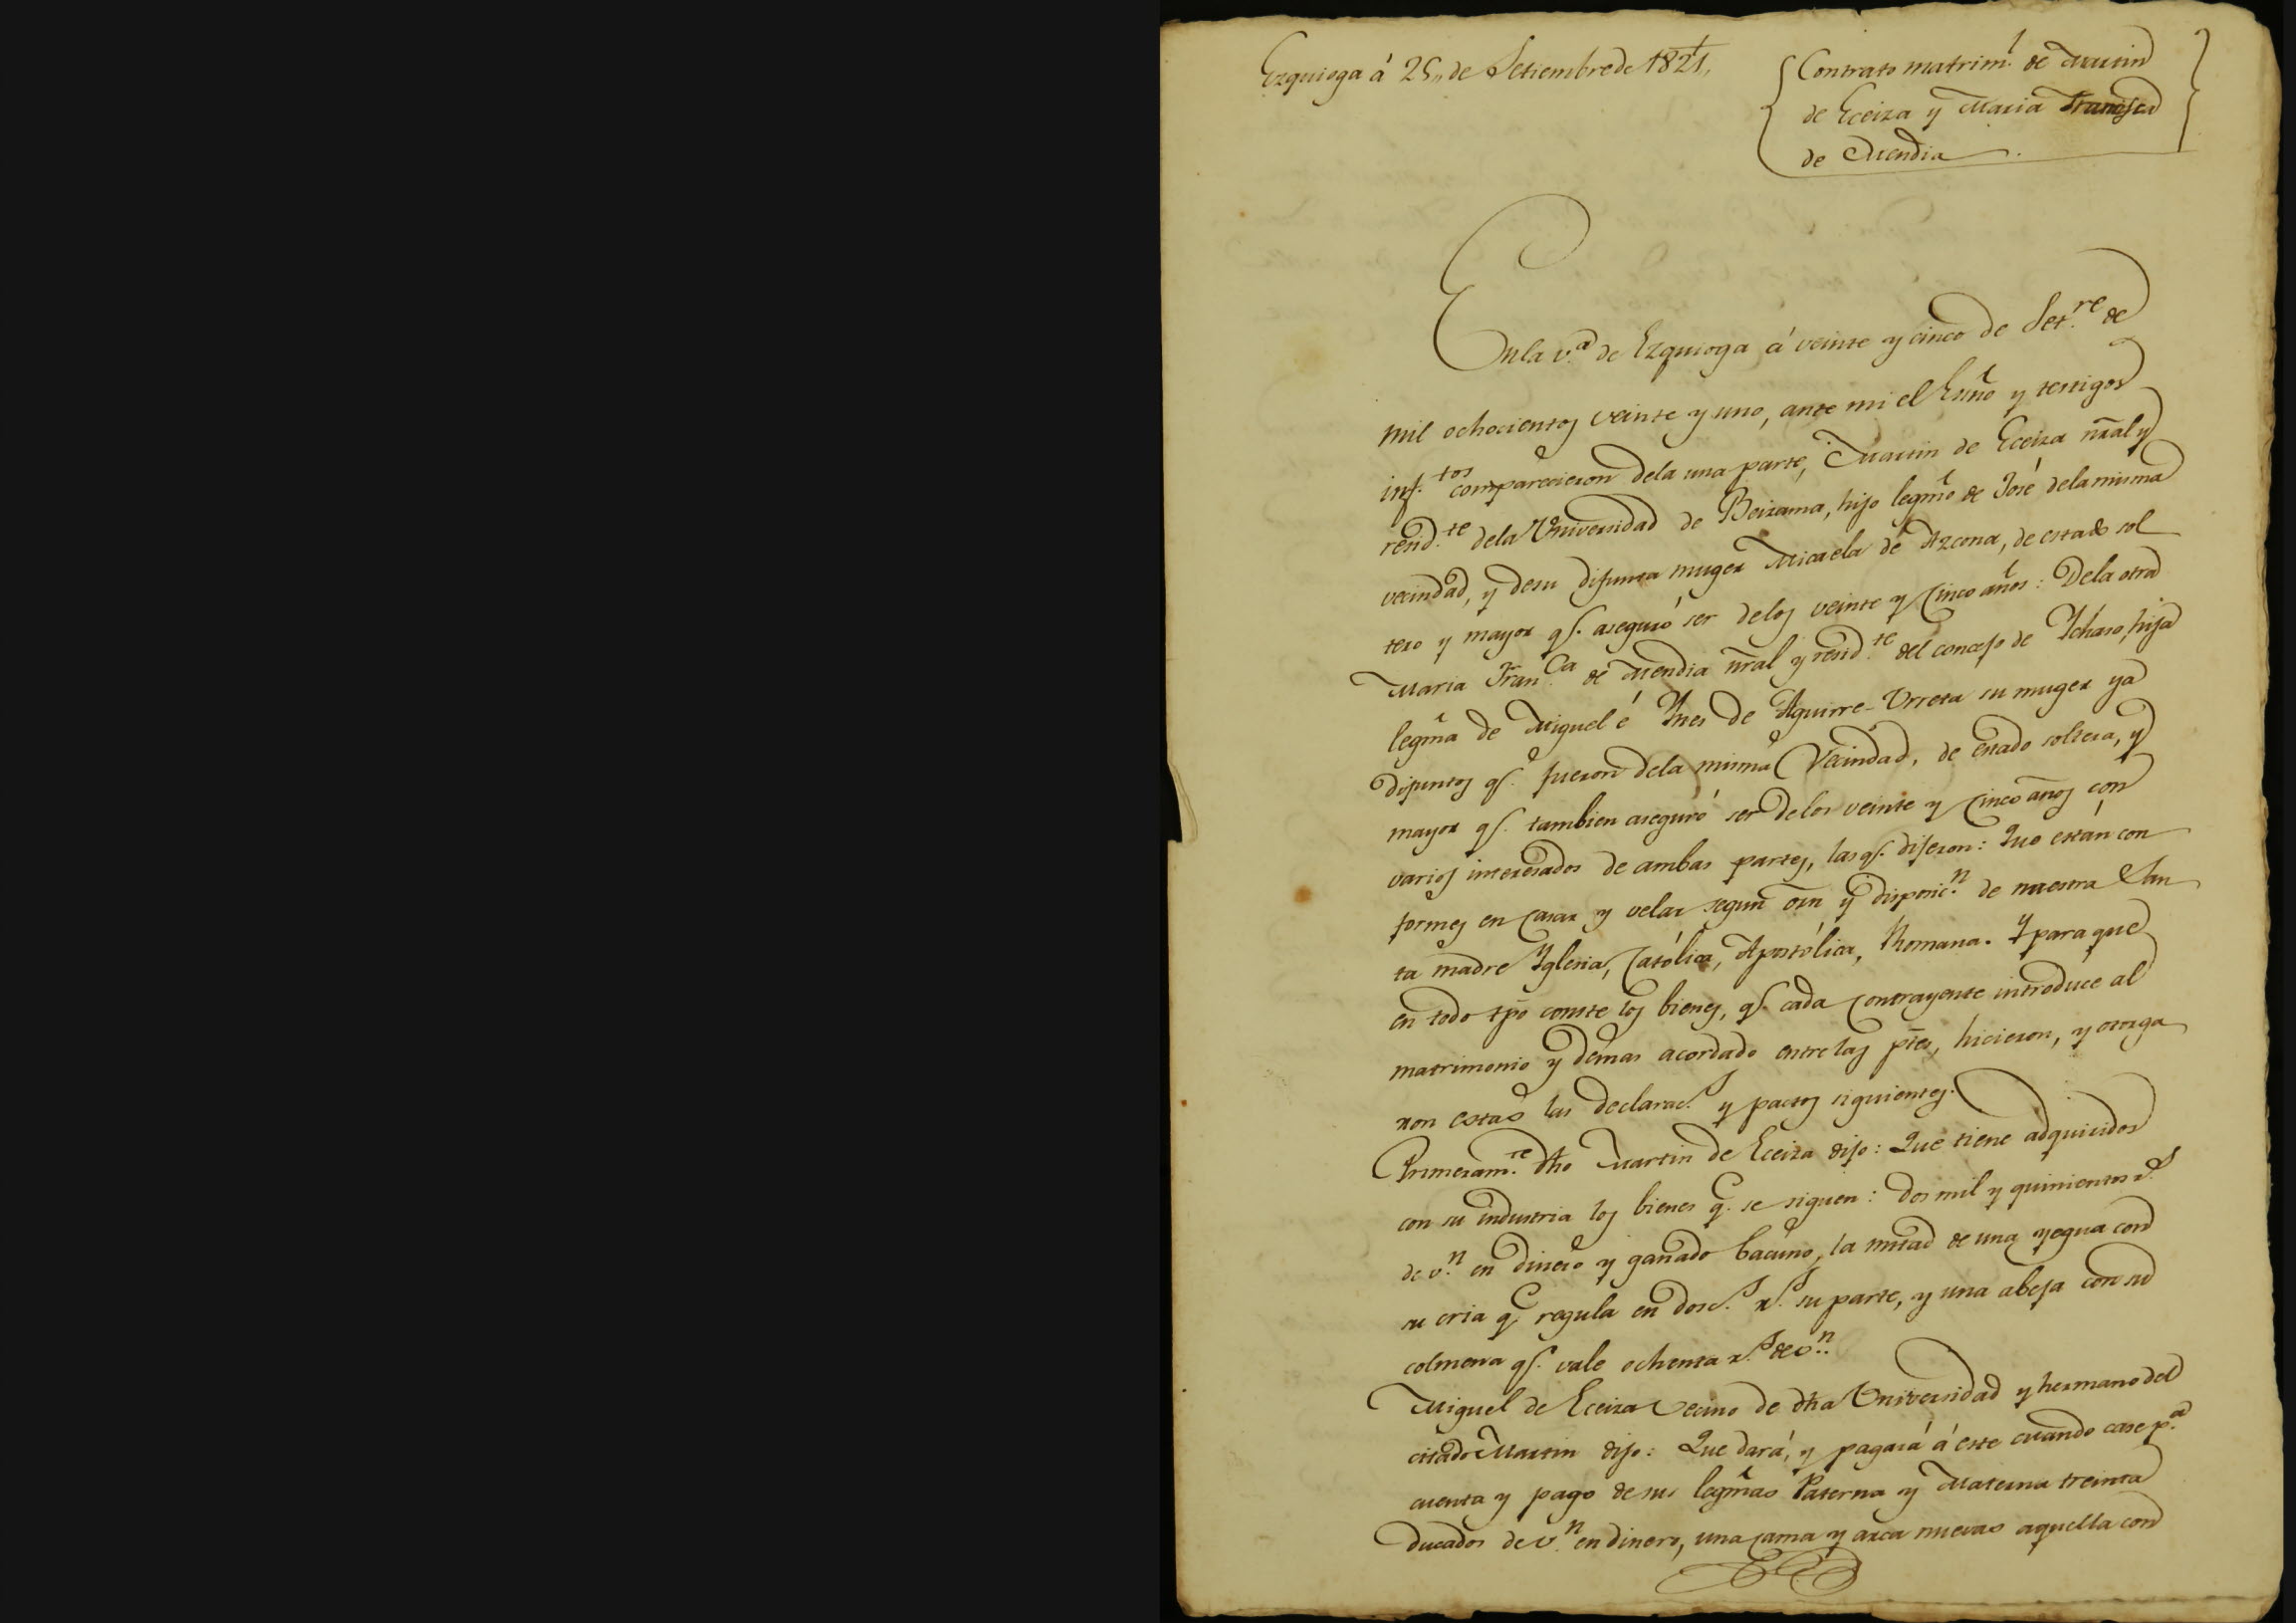 Ezquioga á 25,, de Setiembre de 1821,,
Contrato matrim.l de Martin
de Eceiza y Maria Francisca
de Mendia.
En la v.a de Ezquioga á veinte y cinco de Set.re de
mil ochocientos veinte y uno, ante mi el Esño y testigos
inf.tos comparecieron dela una parte, Martin de Eceiza nral y
resid.te dela Universidad de Beizama, hijo legmo de José dela misma
vecindad, y desu difunta muger Micaela de Azcona, de estado sol
tero y mayor q.e aseguró ser delos veinte y cinco años: Dela otra
Maria Fran.ca de Mendia nral y resid.te del concejo de Ychaso, hija
legma de Miguel é Ynes de Aguirre-Urreta su muger ya
difuntos q.e fueron dela misma Vecindad, de estado soltera, y
mayor q.e tambien aseguró ser delos veinte y cinco años con
varios interesados de ambas partes, las q.e dijeron: Que están con
formes en casar y velar segun orn y disposic.n de nuestra San
ta madre Yglesia, Católica, Apostólica, Romana. Y para que
en todo tpo conste los bienes, q.e cada contrayente introduce al
matrimonio y demas acordado entre las ptes, hicieron, y otorga
ron estas las declarac.s y pactos siguientes.
Primeram.te dho Martin de Eceiza dijo: Que tiene adquiridos
con su industria los bienes q.e se siguen: dos mil y quinientos r.s
de v.n en dinero y ganado bacuno, la mitad de una yegua con
su cria q.e regula en dosc.s r.s su parte, y una abeja con su
colmena q.e vale ochenta r.s de v.n
Miguel de Eceiza vecino de dha Universidad y hermano del
citado Martin dijo: Que dará, y pagará á este cuando case p.a
cuenta y pago de sus legmas Paterna y Materna treinta
ducados de v.n en dinero, una cama y arca nuevas aquella con